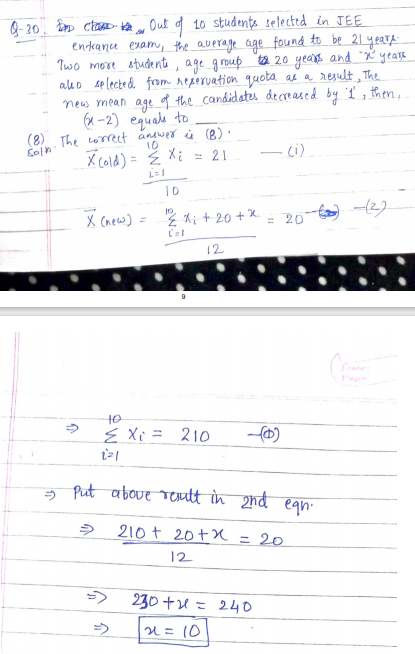 Q-30. Out of 10 students selected in JEE
entrance exam, the average age found to be 21 years.
Two more students, age group 20 years and 'x' years
also selected from reservation quota as a result, The
new mean age of the candidates decreased by '1', then,
(x-2) equals to ____
(8)
Soln. The correct answer is (8).
X̄(old) = 10 Σ i=1 Xi / 10 = 21 — (i)
X̄(new) = 10 Σ i=1 Xi + 20 + x / 12 = 20 — (2)
9
⇒ 10 Σ i=1 Xi = 210 —(1)
⇒ Put above result in 2nd eqn.
⇒ 210 + 20 + x / 12 = 20
⇒ 230 + x = 240
⇒ x = 10